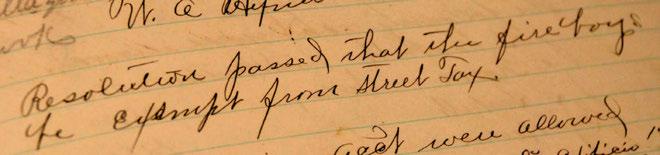 W. A.
Resolution passed that the fire boys
be exempt from Street Tax.
were allowed